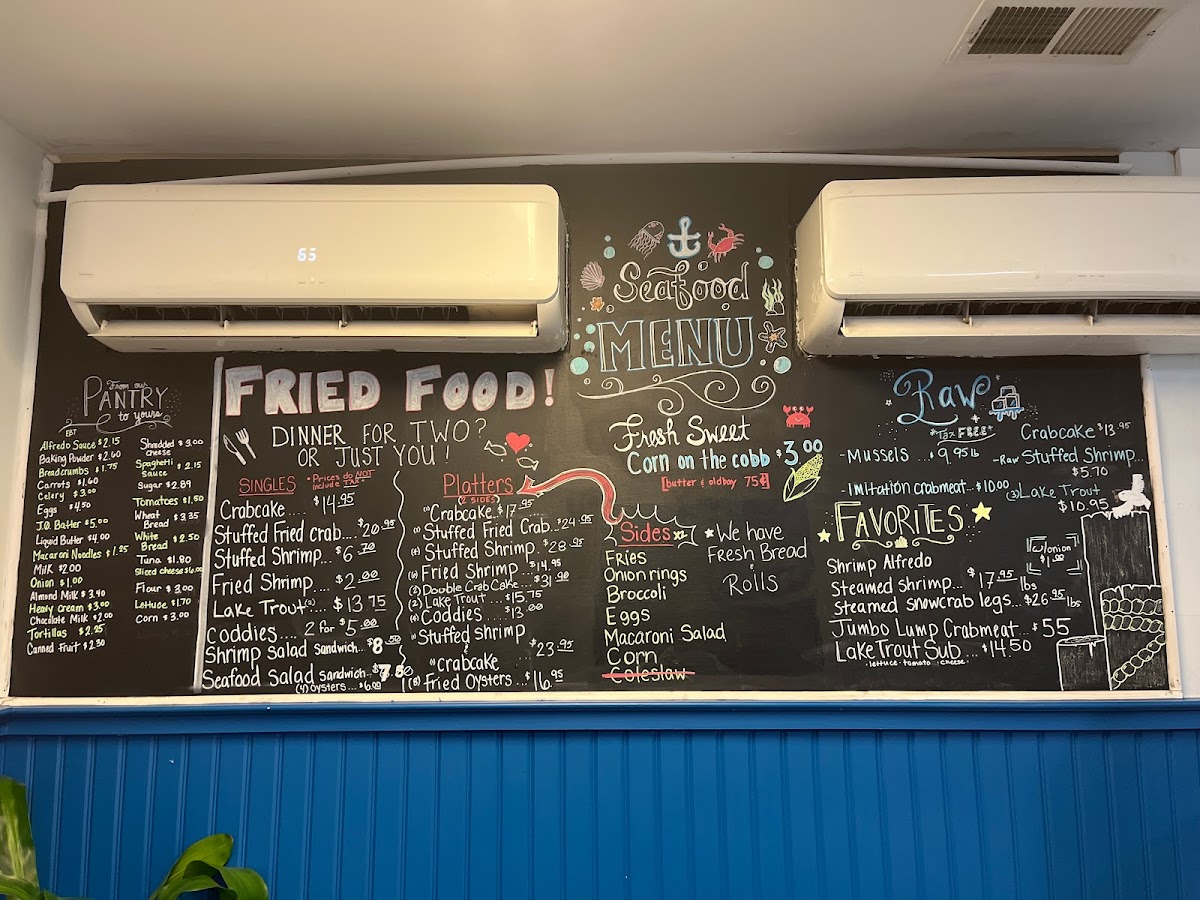 65
Seafood
MENU
From our
PANTRY
to yours
EBT
Alfredo Sauce $2.15
Baking Powder $2.60
Breadcrumbs $1.75
Carrots $1.60
Celery $3.00
Eggs $4.50
J.O. Batter $5.00
Liquid Butter $4.00
Macaroni Noodles $1.25
Milk $2.00
Onion $1.00
Almond Milk $3.40
Heavy Cream $3.00
Chocolate Milk $2.00
Tortillas $2.25
Canned Fruit $2.50
Shredded $3.00
Cheese
Spaghetti $2.15
Sauce
Sugar $2.89
Tomatoes $1.50
Wheat $3.35
Bread
White $2.50
Bread
Tuna $1.80
Sliced cheese $6.00
Flour $3.00
Lettuce $1.70
Corn $3.00
FRIED FOOD!
DINNER FOR TWO?
OR JUST YOU!
SINGLES
*Prices do NOT
include TAX*
Crabcake.... $14.95
Stuffed Fried crab.... $20.95
Stuffed Shrimp... $6.70
Fried Shrimp.... $2.00
Lake Trout(2)... $13.75
Coddies..... 2 for $5.00
Shrimp Salad Sandwich.. $8.50
Seafood Salad Sandwich.. $7.50
(4) Oysters... $6.00
Platters
(2 SIDES)
(1) Crabcake. $17.95
(1) Stuffed Fried Crab.. $24.95
(4) Stuffed Shrimp. $28.95
(6) Fried Shrimp.. $14.95
(2) Double Crab Cake.. $31.90
(2) Lake Trout .... $15.75
(4) Coddies .... $13.00
(1) Stuffed shrimp
&
(1) Crabcake $23.95
(8) Fried Oysters ... $16.95
Fresh Sweet
Corn on the cobb $3.00
[butter & oldbay 75¢]
Sides x2
Fries
Onion rings
Broccoli
Eggs
Macaroni Salad
Corn
Coleslaw
*We have
Fresh Bread
&
Rolls
Raw
*Tax FREE*
-Mussels ... $9.95 lb
-Imitation crabmeat... $10.00
Crabcake $13.95
-Raw Stuffed Shrimp...
$5.70
(3) Lake Trout
$10.95
FAVORITES
Shrimp Alfredo
Steamed shrimp... $17.95 lbs
Steamed snowcrab legs... $26.95 lbs
Jumbo Lump Crabmeat... $55
Lake Trout Sub... $14.50
lettuce • tomato • cheese
w/onion
$1.00